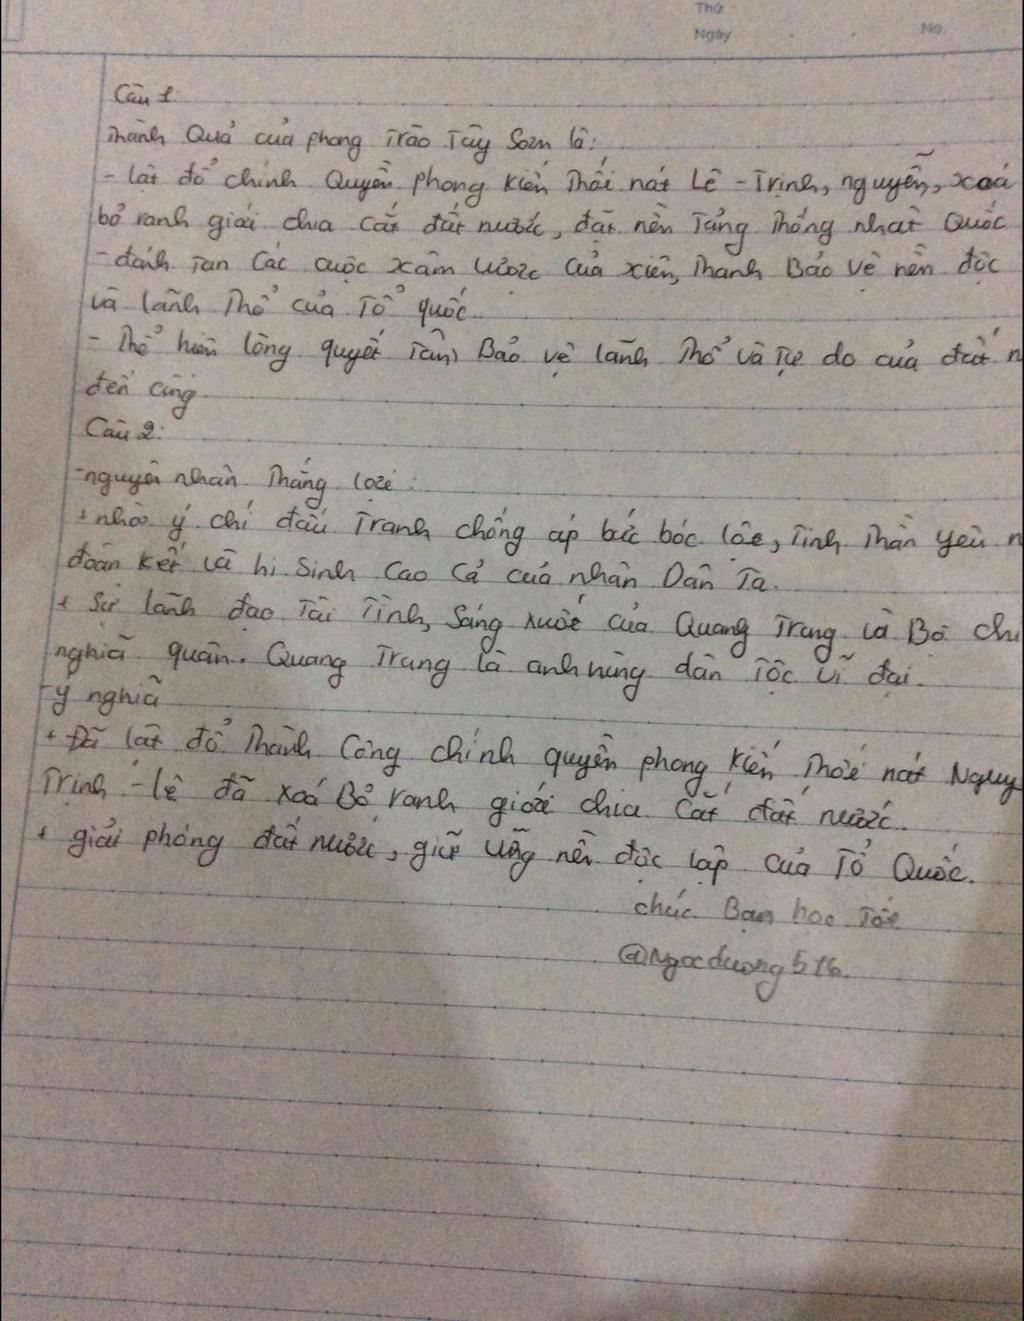 Thứ
Ngày
No.
Câu 1
Thành Quả của phong Trào Tây Sơn là:
- lật đổ chính Quyền phong kiến Thối nát Lê - Trịnh, nguyễn, xoá
bỏ ranh giới chia cắt đất nước, đặt nền Tảng Thống nhất Quốc
- đánh Tan các cuộc xâm lược của xiêm, Thanh Bảo vệ nền độc
và lãnh Thổ của Tổ quốc
- Thể hiện lòng quyết Tâm Bảo vệ lãnh Thổ và Tự do của đất n
đến cùng.
Câu 2:
- nguyên nhân Thắng lợi:
+ nhờ ý chí đấu Tranh chống áp bức bóc lột, Tinh Thần yêu n
đoàn kết và hi sinh cao cả của nhân Dân Ta.
+ Sự lãnh đạo Tài Tình, Sáng suốt của Quang Trung và Bộ chỉ
nghĩa quân. Quang Trung là anh hùng dân Tộc vĩ đại.
- ý nghĩa
+ Đã lật đổ Thành Công chính quyền phong kiến Thối nát Nguy
Trịnh - lê đã xoá Bỏ ranh giới chia Cắt đất nước.
+ giải phóng đất nước, giữ vững nền độc lập của Tổ Quốc.
chúc Bạn học Tốt
@Ngocduong516